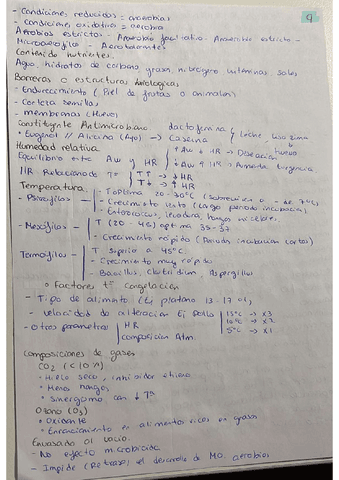 9
- Condiciones reducidas = anaerobias
- Condiciones oxidativas = aerobia
Aerobios estrictos - Anaerobio facultativo - Anaerobio estricto -
Microaerofilo - Aerotolerantes
Contenido nutrientes.
Agua, hidratos de carbono, grasa, nitrógeno vitaminas sales
Barreras o estructuras biológicas
- Endurecimiento (Piel de frutas o animales)
- Corteza semillas
- membranas (Huevo)
Constituyente Antimicrobiano
- Eugenol // Alicina (Ajo) → Caseina lactoferrina } Leche lisozima huevo
Humedad relativa
Equilibrio entre Aw y HR { ↑ Aw ↓ HR → Desecación
↓ Aw ↑ HR → Aumenta
HR Relacionada Tª = { T ↑ → ↓ HR
T ↓ → ↑ HR
Temperatura
- Psicrófilos - Tª optima 20 - 30°C
- Crecimiento lento (Largo periodo incubación)
- Enterococcus, levaduras hongos
- Mesófilos - T (20 - 45) optima 35 - 37
- Crecimiento rápido (Periodo incubación cortos)
Termofilos - T. Superior a 45°C
- Crecimiento muy rápido
- Bacillus, Clostridium, Aspergillus
o Factores tª congelación
- Tipo de alimento (Ej platano 13 - 17
- Velocidad de alteracion Ej Pollo | 15°C → x3
10°C → x2
5°C → x1
- Otros parametros | HR
composición Atm.
Composiciones de gases
CO2
- Hielo seco, inhibidor
- Menos hongos
- Sinergismo con ↓ Tª
Ozono (O3)
- Oxidante
- Enranciamiento en alimentos ricos en grasas
Envasado al vacío.
- No efecto microbicida
- Impide (Retrasa) el desarrollo de MO. aerobios